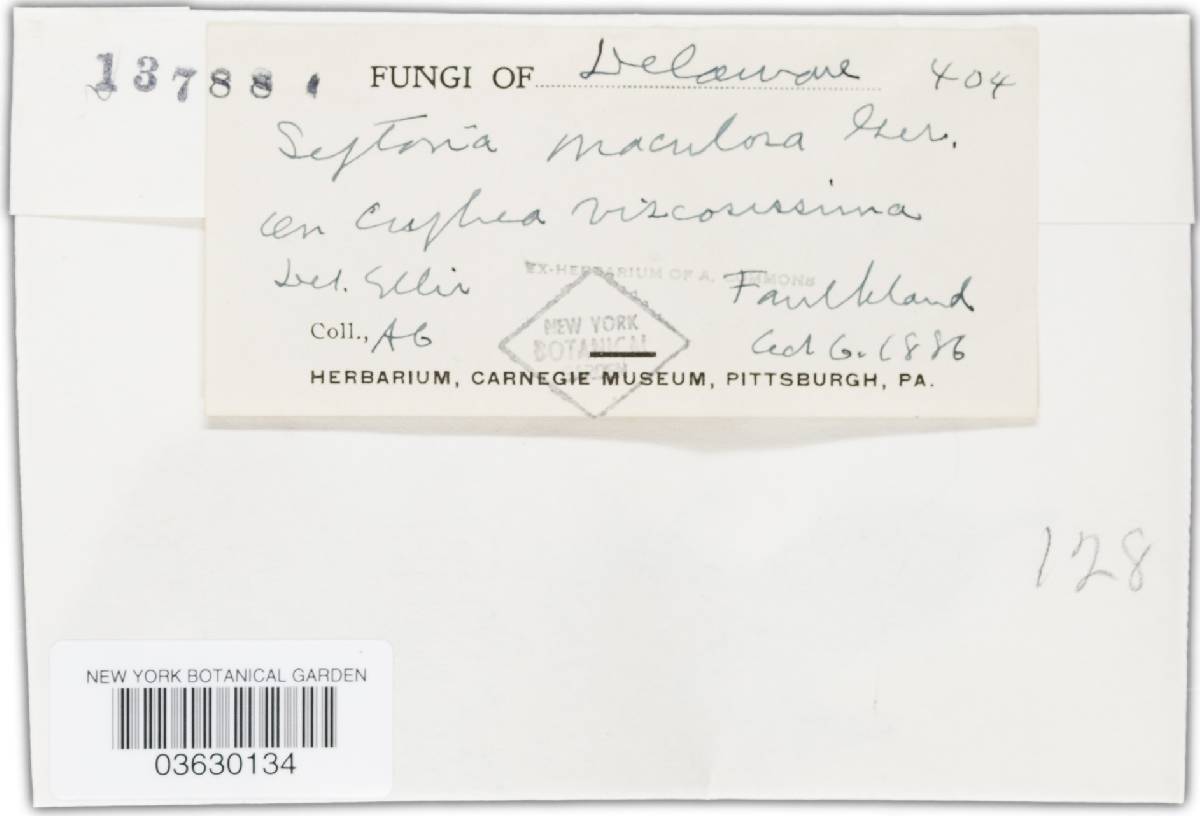 13788
FUNGI OF Delaware 404
Septoria maculosa Ger.
on Cuphea viscosissima
EX-HERBARIUM OF A. COMMONS
Det. Ellis Faulkland
NEW YORK
BOTANICAL
GARDEN
Coll., AC Oct 6. 1886
HERBARIUM, CARNEGIE MUSEUM, PITTSBURGH, PA.
128
NEW YORK BOTANICAL GARDEN
03630134